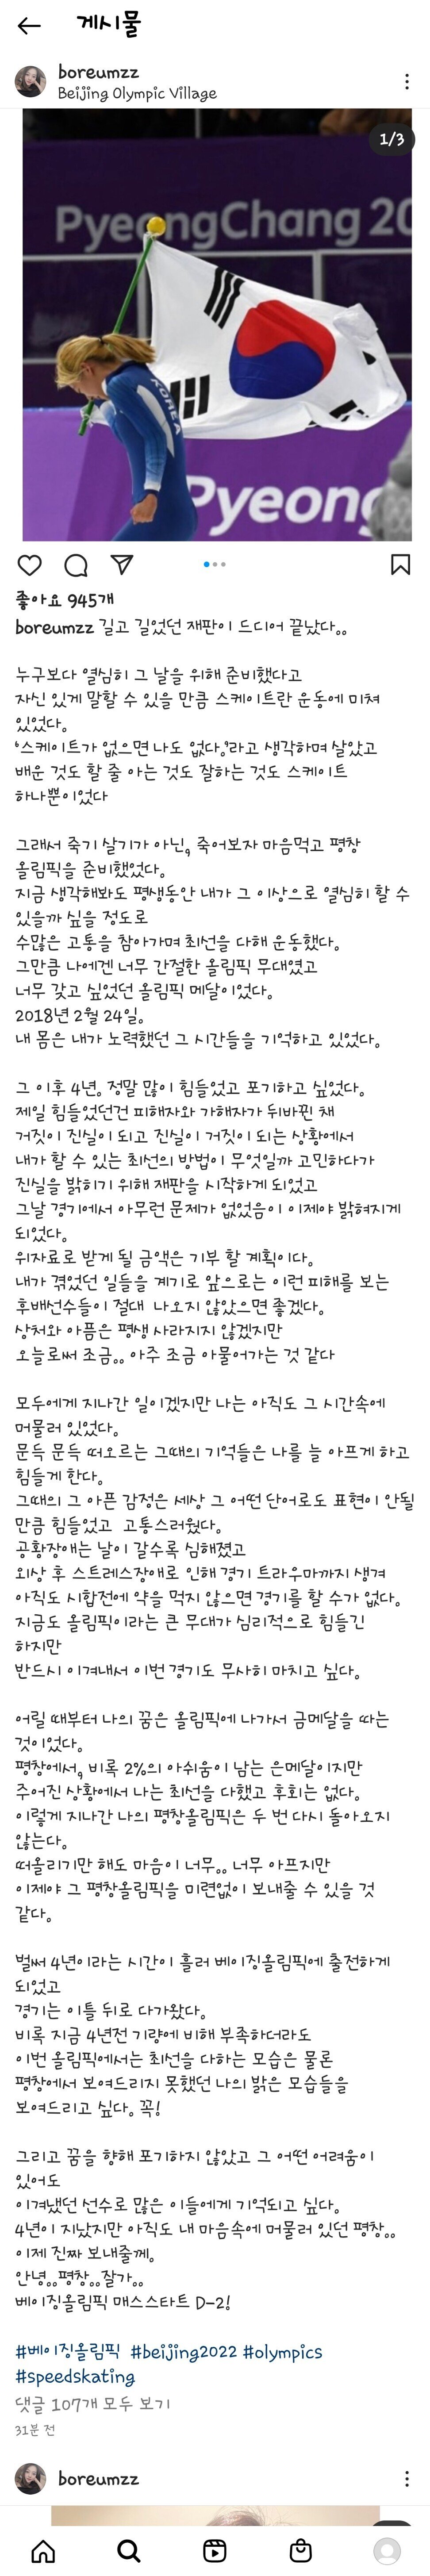 게시물
boreumzz
Beijing Olympic Village
1/3
PyeongChang 20
KOREA
Pyeong
좋아요 945개
boreumzz 길고 길었던 재판이 드디어 끝났다..
누구보다 열심히 그 날을 위해 준비했다고
자신 있게 말할 수 있을 만큼 스케이트란 운동에 미쳐
있었다.
'스케이트가 없으면 나도 없다.'라고 생각하며 살았고
배운 것도 할 줄 아는 것도 잘하는 것도 스케이트
하나뿐이었다
그래서 죽기 살기가 아닌, 죽어보자 마음먹고 평창
올림픽을 준비했었다.
지금 생각해봐도 평생동안 내가 그 이상으로 열심히 할 수
있을까 싶을 정도로
수많은 고통을 참아가며 최선을 다해 운동했다.
그만큼 나에겐 너무 간절한 올림픽 무대였고
너무 갖고 싶었던 올림픽 메달이었다.
2018년 2월 24일.
내 몸은 내가 노력했던 그 시간들을 기억하고 있었다.
그 이후 4년. 정말 많이 힘들었고 포기하고 싶었다.
제일 힘들었던건 피해자와 가해자가 뒤바뀐 채
거짓이 진실이 되고 진실이 거짓이 되는 상황에서
내가 할 수 있는 최선의 방법이 무엇일까 고민하다가
진실을 밝히기 위해 재판을 시작하게 되었고
그날 경기에서 아무런 문제가 없었음이 이제야 밝혀지게
되었다.
위자료로 받게 될 금액은 기부 할 계획이다.
내가 겪었던 일들을 계기로 앞으로는 이런 피해를 보는
후배선수들이 절대 나오지 않았으면 좋겠다.
상처와 아픔은 평생 사라지지 않겠지만
오늘로써 조금.. 아주 조금 아물어가는 것 같다
모두에게 지나간 일이겠지만 나는 아직도 그 시간속에
머물러 있었다.
문득 문득 떠오르는 그때의 기억들은 나를 늘 아프게 하고
힘들게 한다.
그때의 그 아픈 감정은 세상 그 어떤 단어로도 표현이 안될
만큼 힘들었고 고통스러웠다.
공황장애는 날이 갈수록 심해졌고
외상 후 스트레스장애로 인해 경기 트라우마까지 생겨
아직도 시합전에 약을 먹지 않으면 경기를 할 수가 없다.
지금도 올림픽이라는 큰 무대가 심리적으로 힘들긴
하지만
반드시 이겨내서 이번 경기도 무사히 마치고 싶다.
어릴 때부터 나의 꿈은 올림픽에 나가서 금메달을 따는
것이었다.
평창에서, 비록 2%의 아쉬움이 남는 은메달이지만
주어진 상황에서 나는 최선을 다했고 후회는 없다.
이렇게 지나간 나의 평창올림픽은 두 번 다시 돌아오지
않는다.
떠올리기만 해도 마음이 너무.. 너무 아프지만
이제야 그 평창올림픽을 미련없이 보내줄 수 있을 것
같다.
벌써 4년이라는 시간이 흘러 베이징올림픽에 출전하게
되었고
경기는 이틀 뒤로 다가왔다.
비록 지금 4년전 기량에 비해 부족하더라도
이번 올림픽에서는 최선을 다하는 모습은 물론
평창에서 보여드리지 못했던 나의 밝은 모습들을
보여드리고 싶다. 꼭!
그리고 꿈을 향해 포기하지 않았고 그 어떤 어려움이
있어도
이겨냈던 선수로 많은 이들에게 기억되고 싶다.
4년이 지났지만 아직도 내 마음속에 머물러 있던 평창..
이제 진짜 보내줄께.
안녕..평창..잘가..
베이징올림픽 매스스타트 D-2!
#베이징올림픽 #beijing2022 #olympics
#speedskating
댓글 107개 모두 보기
31분 전
boreumzz